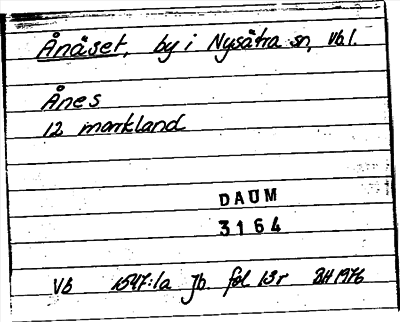 Ånäset, by i Nysätra sn, Vb l.
Ånes
12 markland
DAUM
3164
Vb 1547:1a Jb. fol 13r BH 1976